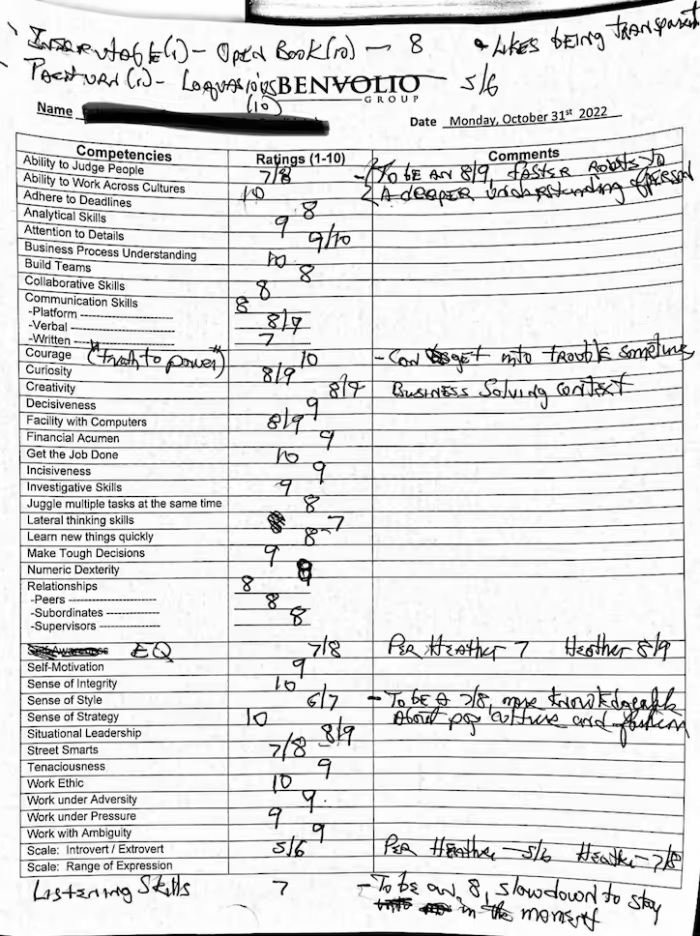 INSCRUTABLE (1) - OPEN BOOK (10) - 8 * LIKES BEING TRANSPARENT
TACITURN (1) - LOQUACIOUS (10) - 5/6
BENVOLIO
GROUP
Name Date Monday, October 31st 2022
Competencies Ratings (1-10) Comments
Ability to Judge People 7/8 - To be AN 8/9, FASTER ROUTES TO
Ability to Work Across Cultures 10 A deeper understanding of person
Adhere to Deadlines 8
Analytical Skills 9
Attention to Details 9/10
Business Process Understanding 10
Build Teams 8
Collaborative Skills 8
Communication Skills 8
-Platform 8/9
-Verbal 7
-Written
Courage ("truth to power") 10 - Can get into trouble sometimes
Curiosity 8/9
Creativity 8/9 Business Solving context
Decisiveness 9
Facility with Computers 8/9
Financial Acumen 9
Get the Job Done 10
Incisiveness 9
Investigative Skills 9
Juggle multiple tasks at the same time 8
Lateral thinking skills 7
Learn new things quickly 8
Make Tough Decisions 9
Numeric Dexterity
Relationships 8
-Peers 8
-Subordinates 8
-Supervisors
EQ 7/8 Per Heather 7 Heather 8/9
Self-Motivation 9
Sense of Integrity 10
Sense of Style 6/7 - To be a 7/8, more knowledgeable
Sense of Strategy 10 About pop culture and fashion
Situational Leadership 8/9
Street Smarts 7/8
Tenaciousness 9
Work Ethic 10
Work under Adversity 9
Work under Pressure 9
Work with Ambiguity 9
Scale: Introvert / Extrovert 5/6 Per Heather - 5/6 Heather - 7/8
Scale: Range of Expression
Listening Skills 7 - To be an 8, slowdown to stay
in the moment